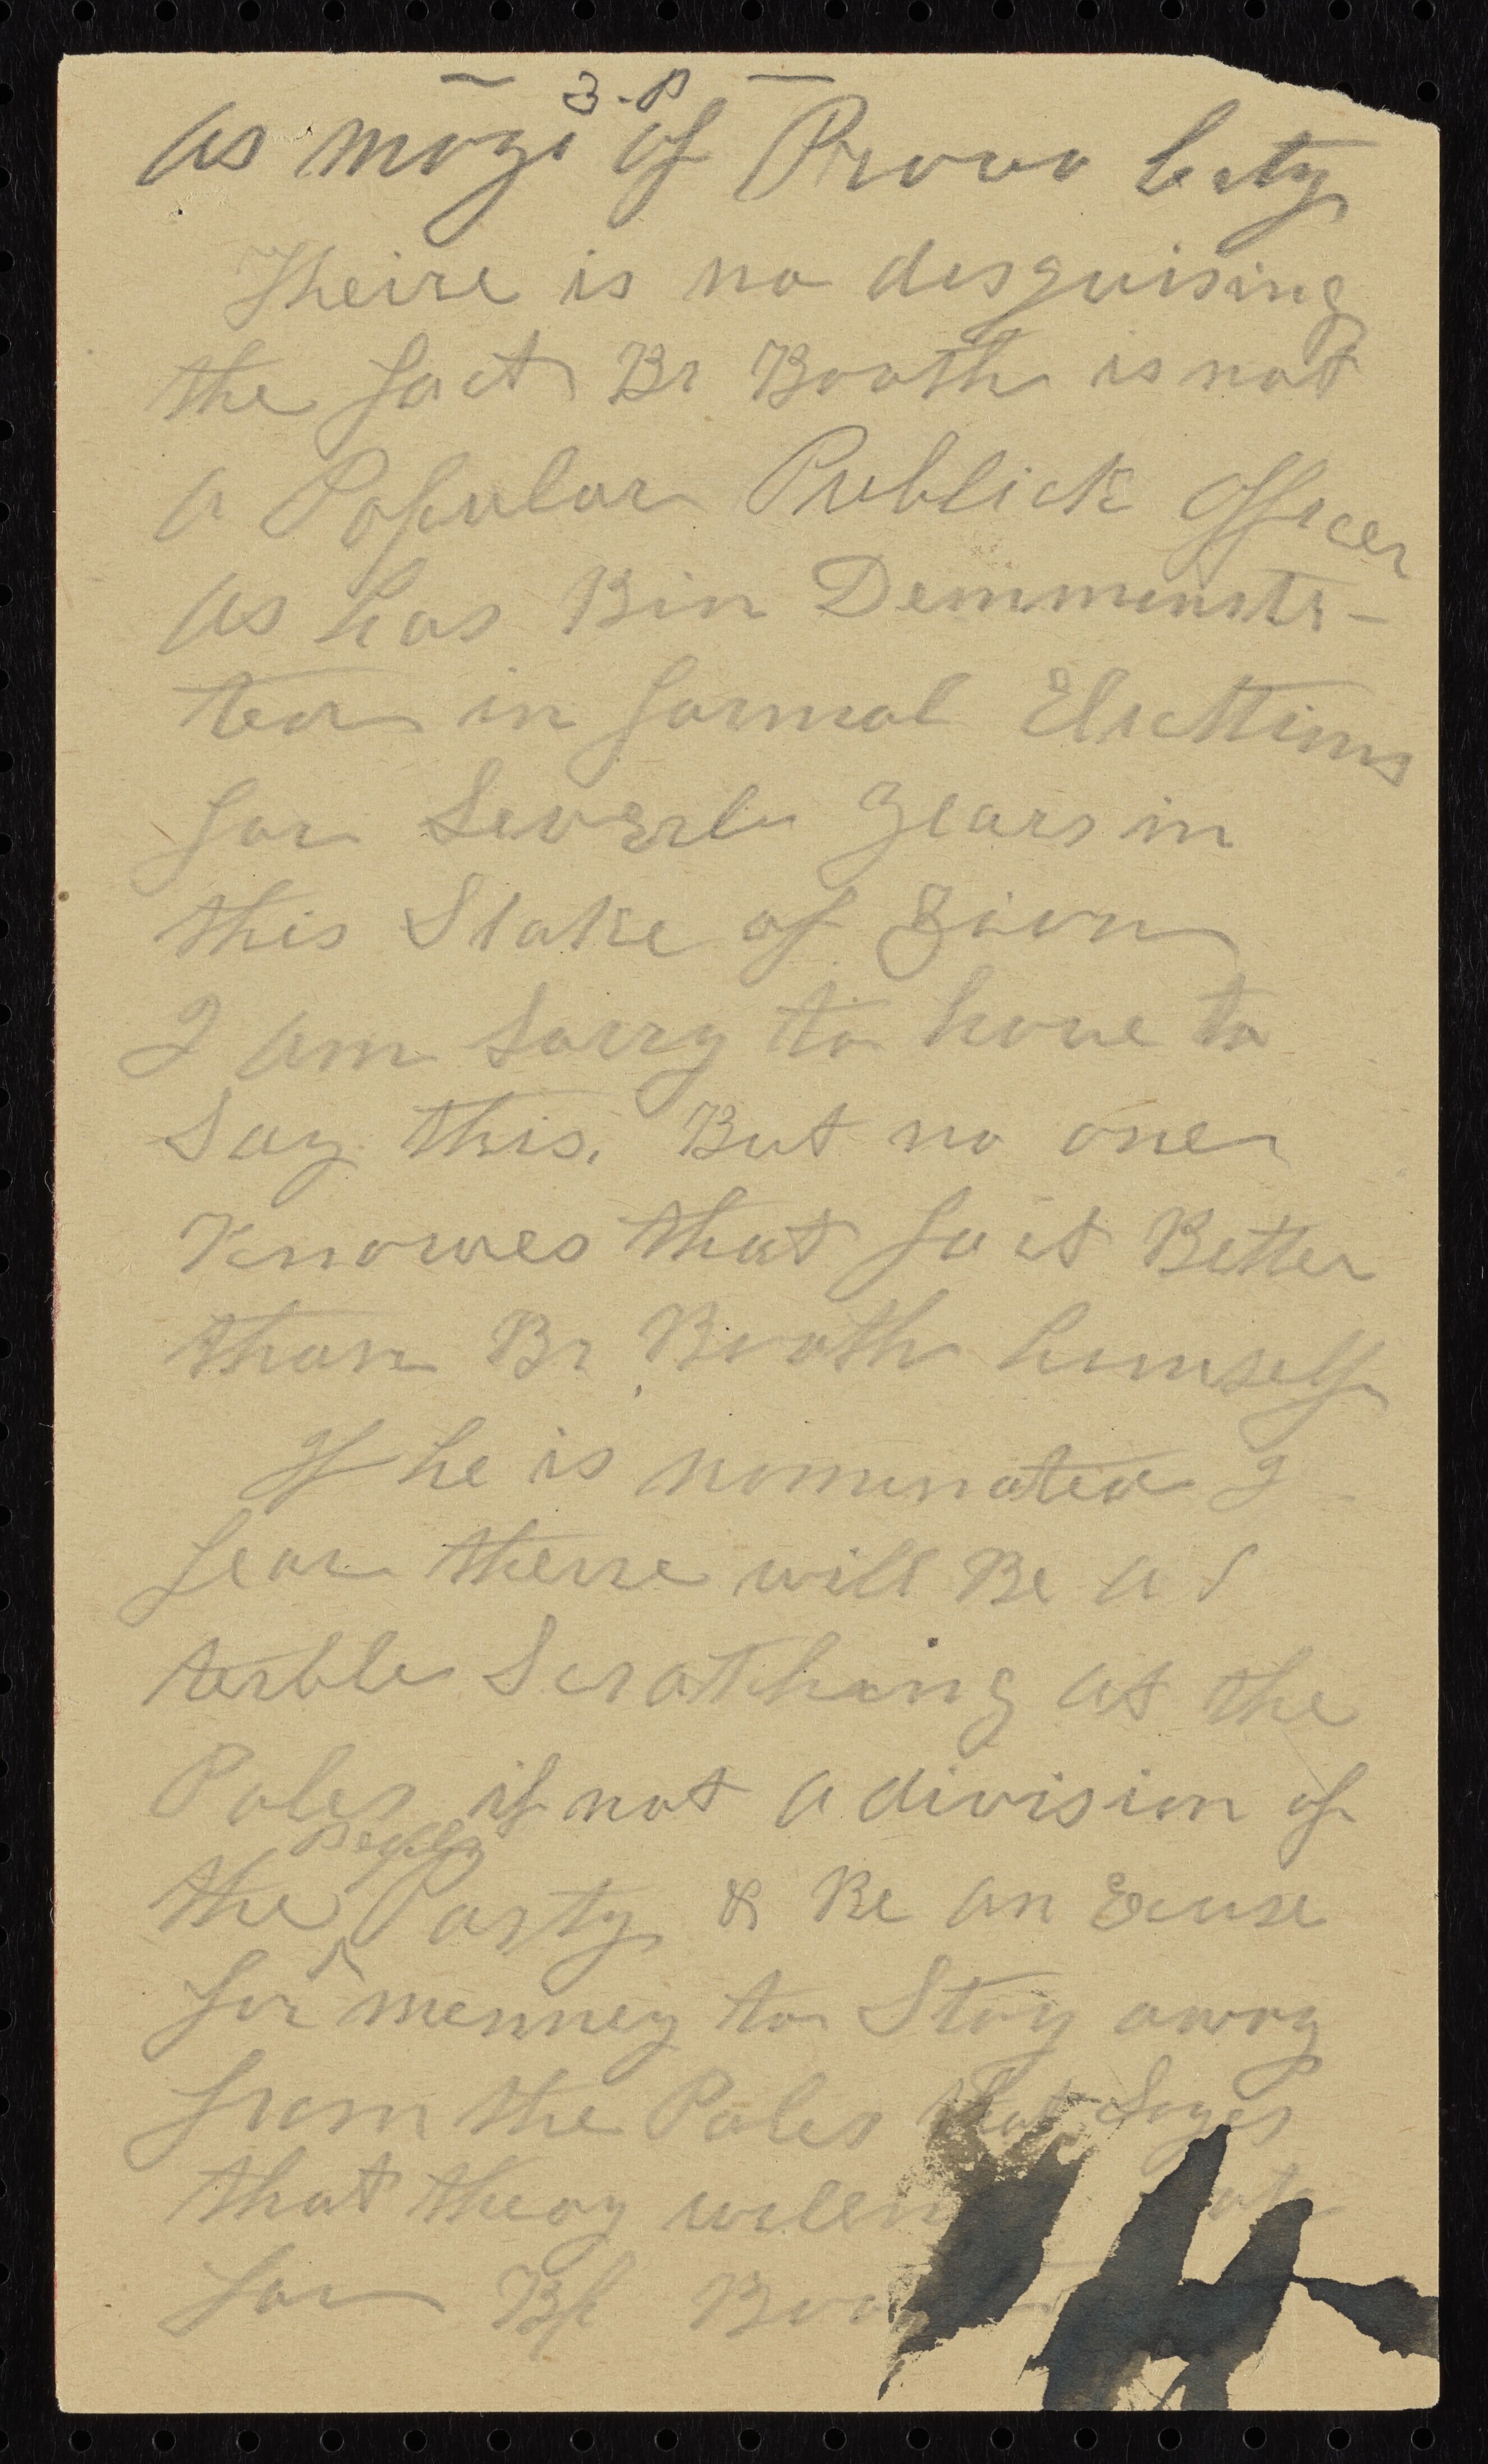 3.P
as mayr of Provo City
Theire is no desguising
the fact Br Booth is not
a Popular Publick officer
as has Bin Demmunstr-
ted in formal Elcttions
for Severl Years in
this Stake of Zion
I am sorry to have to
Say this. But no one
Knowes that fact Better
than Br. Booth himself
If he is nominated I
fear theire will Be a
terble Scrathing at the
Poles if not a division of
Peopls
the Party & Be an Ecuse
for menney to Stay away
from the Poles that Sayes
that theay
for Bp